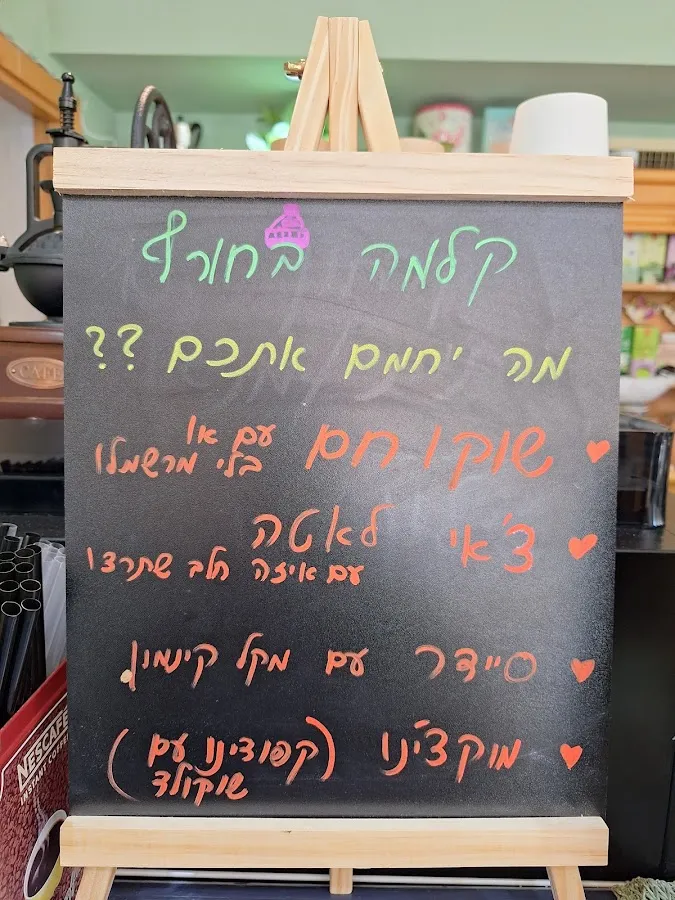 קלמה בחורף
מה יחמם אתכם ??
שוקו חם עם או
בלי מרשמלו
צ'אי לאטה
עם איזה חלב שתרצו
סיידר עם מקל קינמון
מוקצ'ינו (קפוצ'ינו עם
שוקולד)
CAFE
NESCAFÉ
INSTANT COFFEE